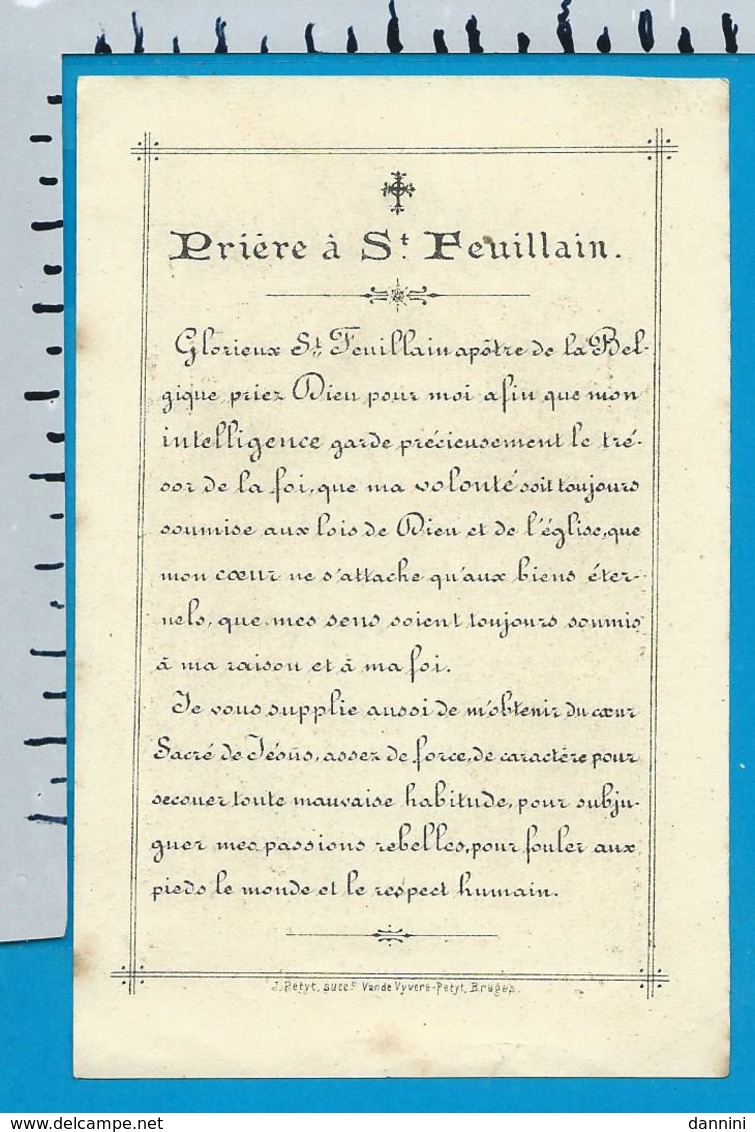 Prière à St. Feuillain.
Glorieux St. Feuillain apôtre de la Bel-
gique priez Dieu pour moi afin que mon
intelligence garde précieusement le tré-
sor de la foi, que ma volonté soit toujours
soumise aux lois de Dieu et de l'église, que
mon cœur ne s'attache qu'aux biens éter-
nels, que mes sens soient toujours soumis
à ma raison et à ma foi.
Je vous supplie aussi de m'obtenir du cœur
Sacré de Jésus, assez de force, de caractère pour
secouer toute mauvaise habitude, pour subju-
guer mes passions rebelles, pour fouler aux
pieds le monde et le respect humain.
J. Petyt, succr. Vande Vyvere-Petyt, Bruges.
dannini